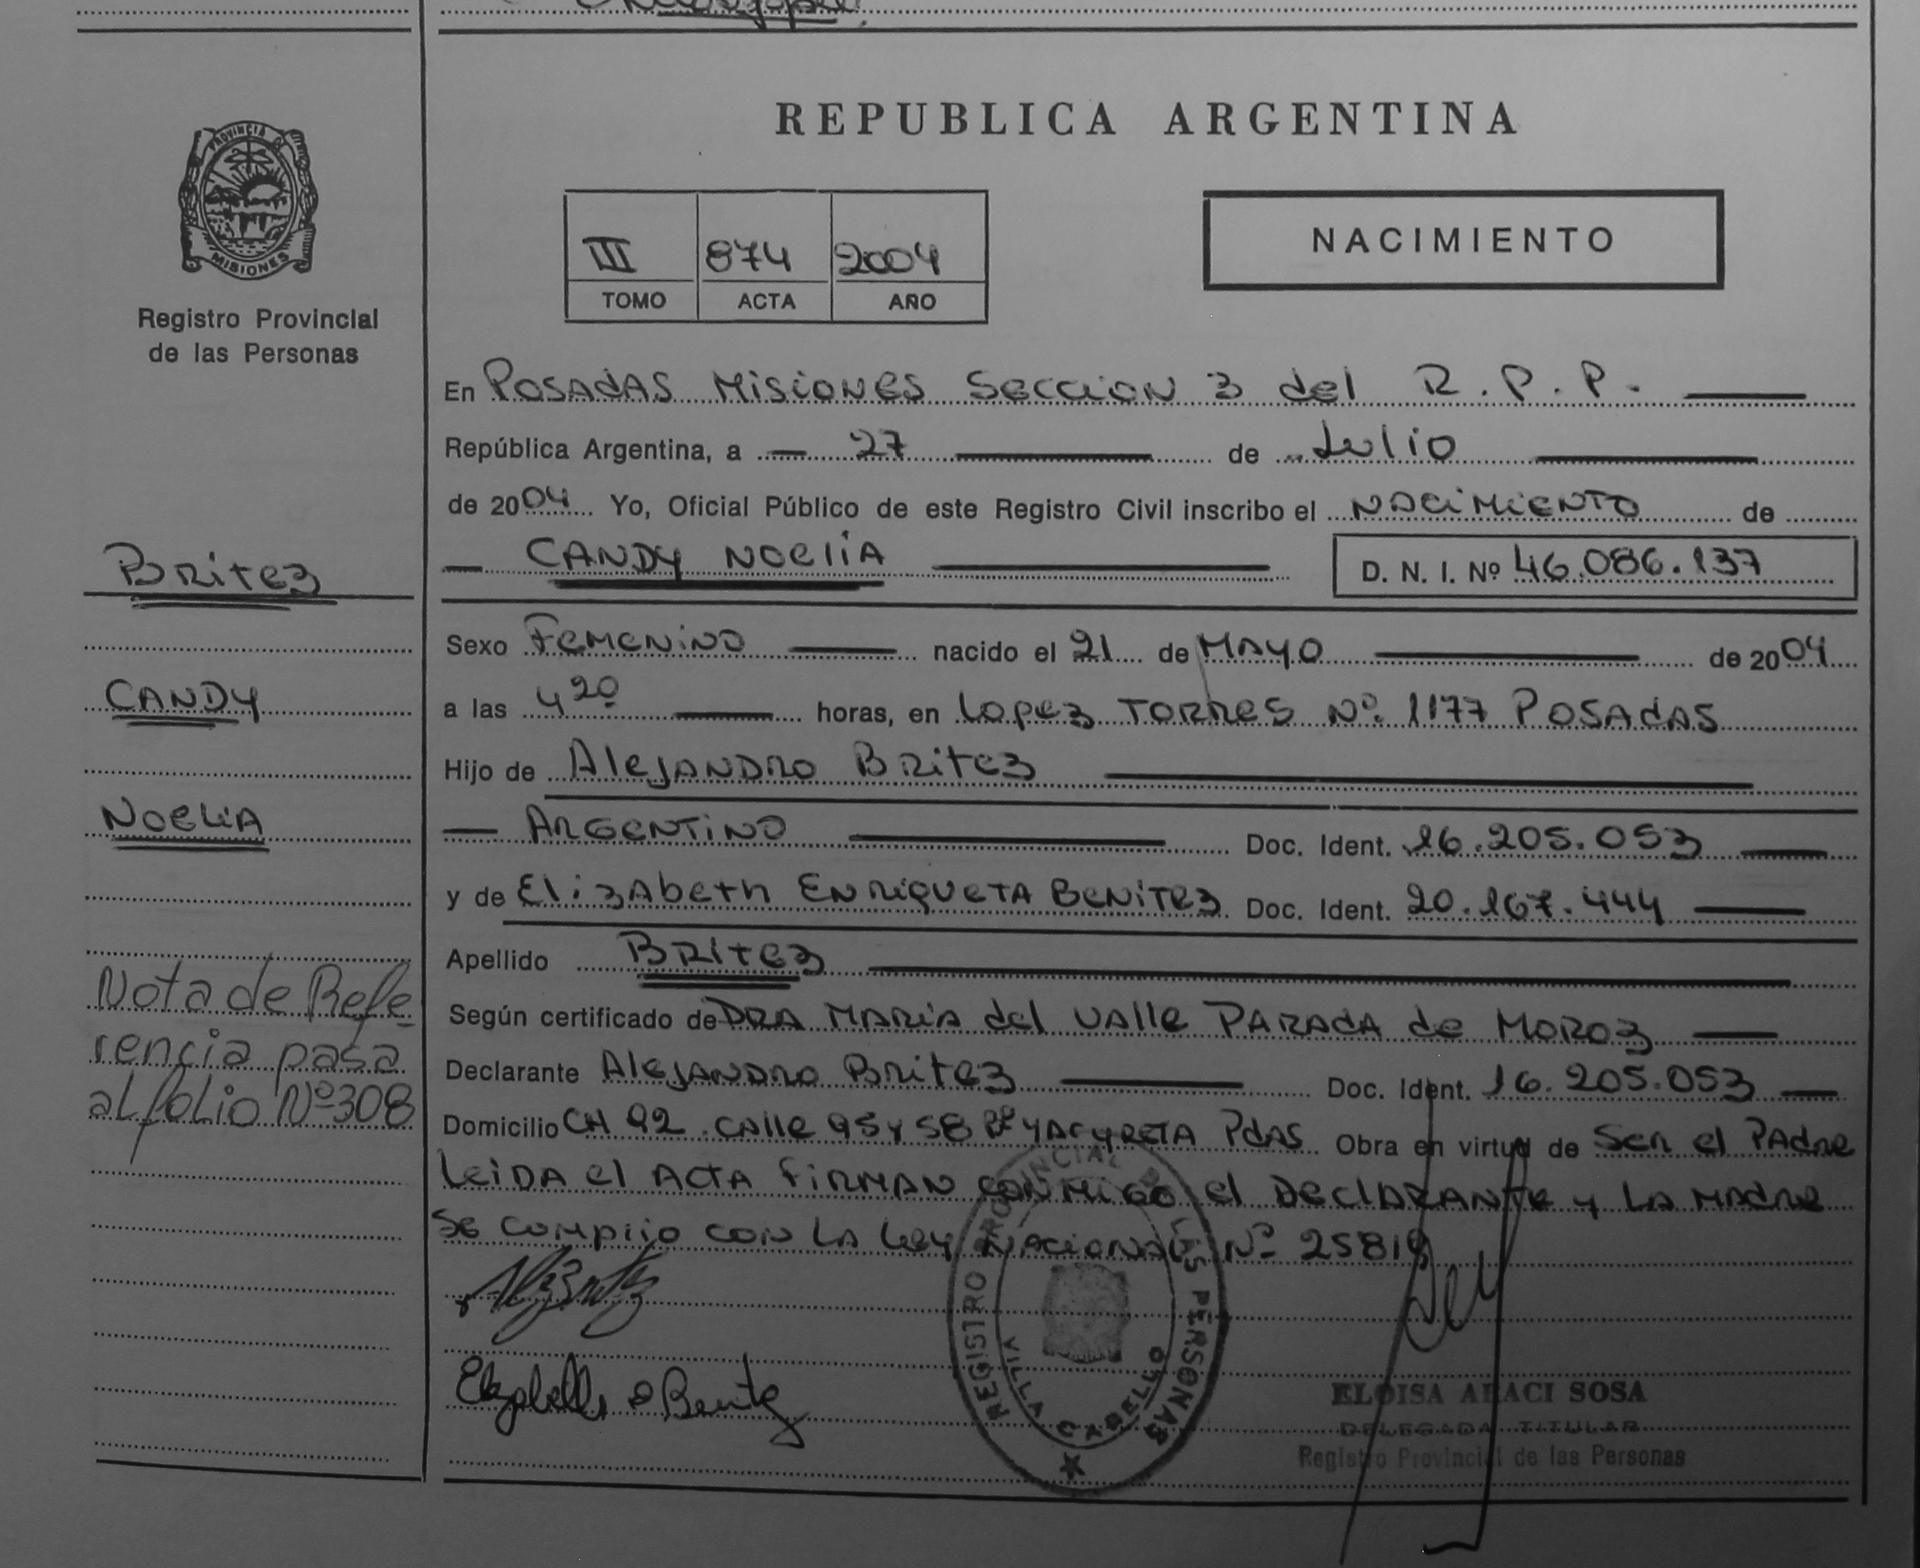 PROVINCIA DE
MISIONES
Registro Provincial
de las Personas
REPUBLICA ARGENTINA
III 874 2004
TOMO ACTA AÑO
NACIMIENTO
En POSADAS MISIONES SECCION 3 del R.P.P.
República Argentina, a 27 de Julio
de 2004 Yo, Oficial Público de este Registro Civil inscribo el NACIMIENTO de
CANDY NOELIA D. N. I. Nº 46.086.137
Sexo FEMENINO nacido el 21 de MAYO de 2004
a las 4 20 horas, en Lopez TORRES Nº 1177 POSADAS
Hijo de AlejANDRO BRitez
ARGENTINO Doc. Ident. 16.205.053
y de ElizAbeth ENRiQUETA BENiTEz Doc. Ident. 20.167.444
Apellido BRitez
Según certificado de DRA MARIA del VAlle PARADA de MOROz
Declarante AlejANDRO BRitez Doc. Ident. 16.205.053
Domicilio CH 92 CAlle 95 y 58 Bº YACYRETA PdAS Obra en virtud de SER el PAdre
LeiDA el ACTA FiRMAN CONMIGO el DEClARANTE y LA MADRE
Se cumplio con LA Ley NACIONAL Nº 25819
BRitez
CANDY
NOELIA
Nota de Refe-
rencia pasa
al folio Nº 308
REGISTRO PROVINCIAL DE LAS PERSONAS
VILLA CABELLO
ELOISA ARACI SOSA
DELEGADA TITULAR
Registro Provincial de las Personas